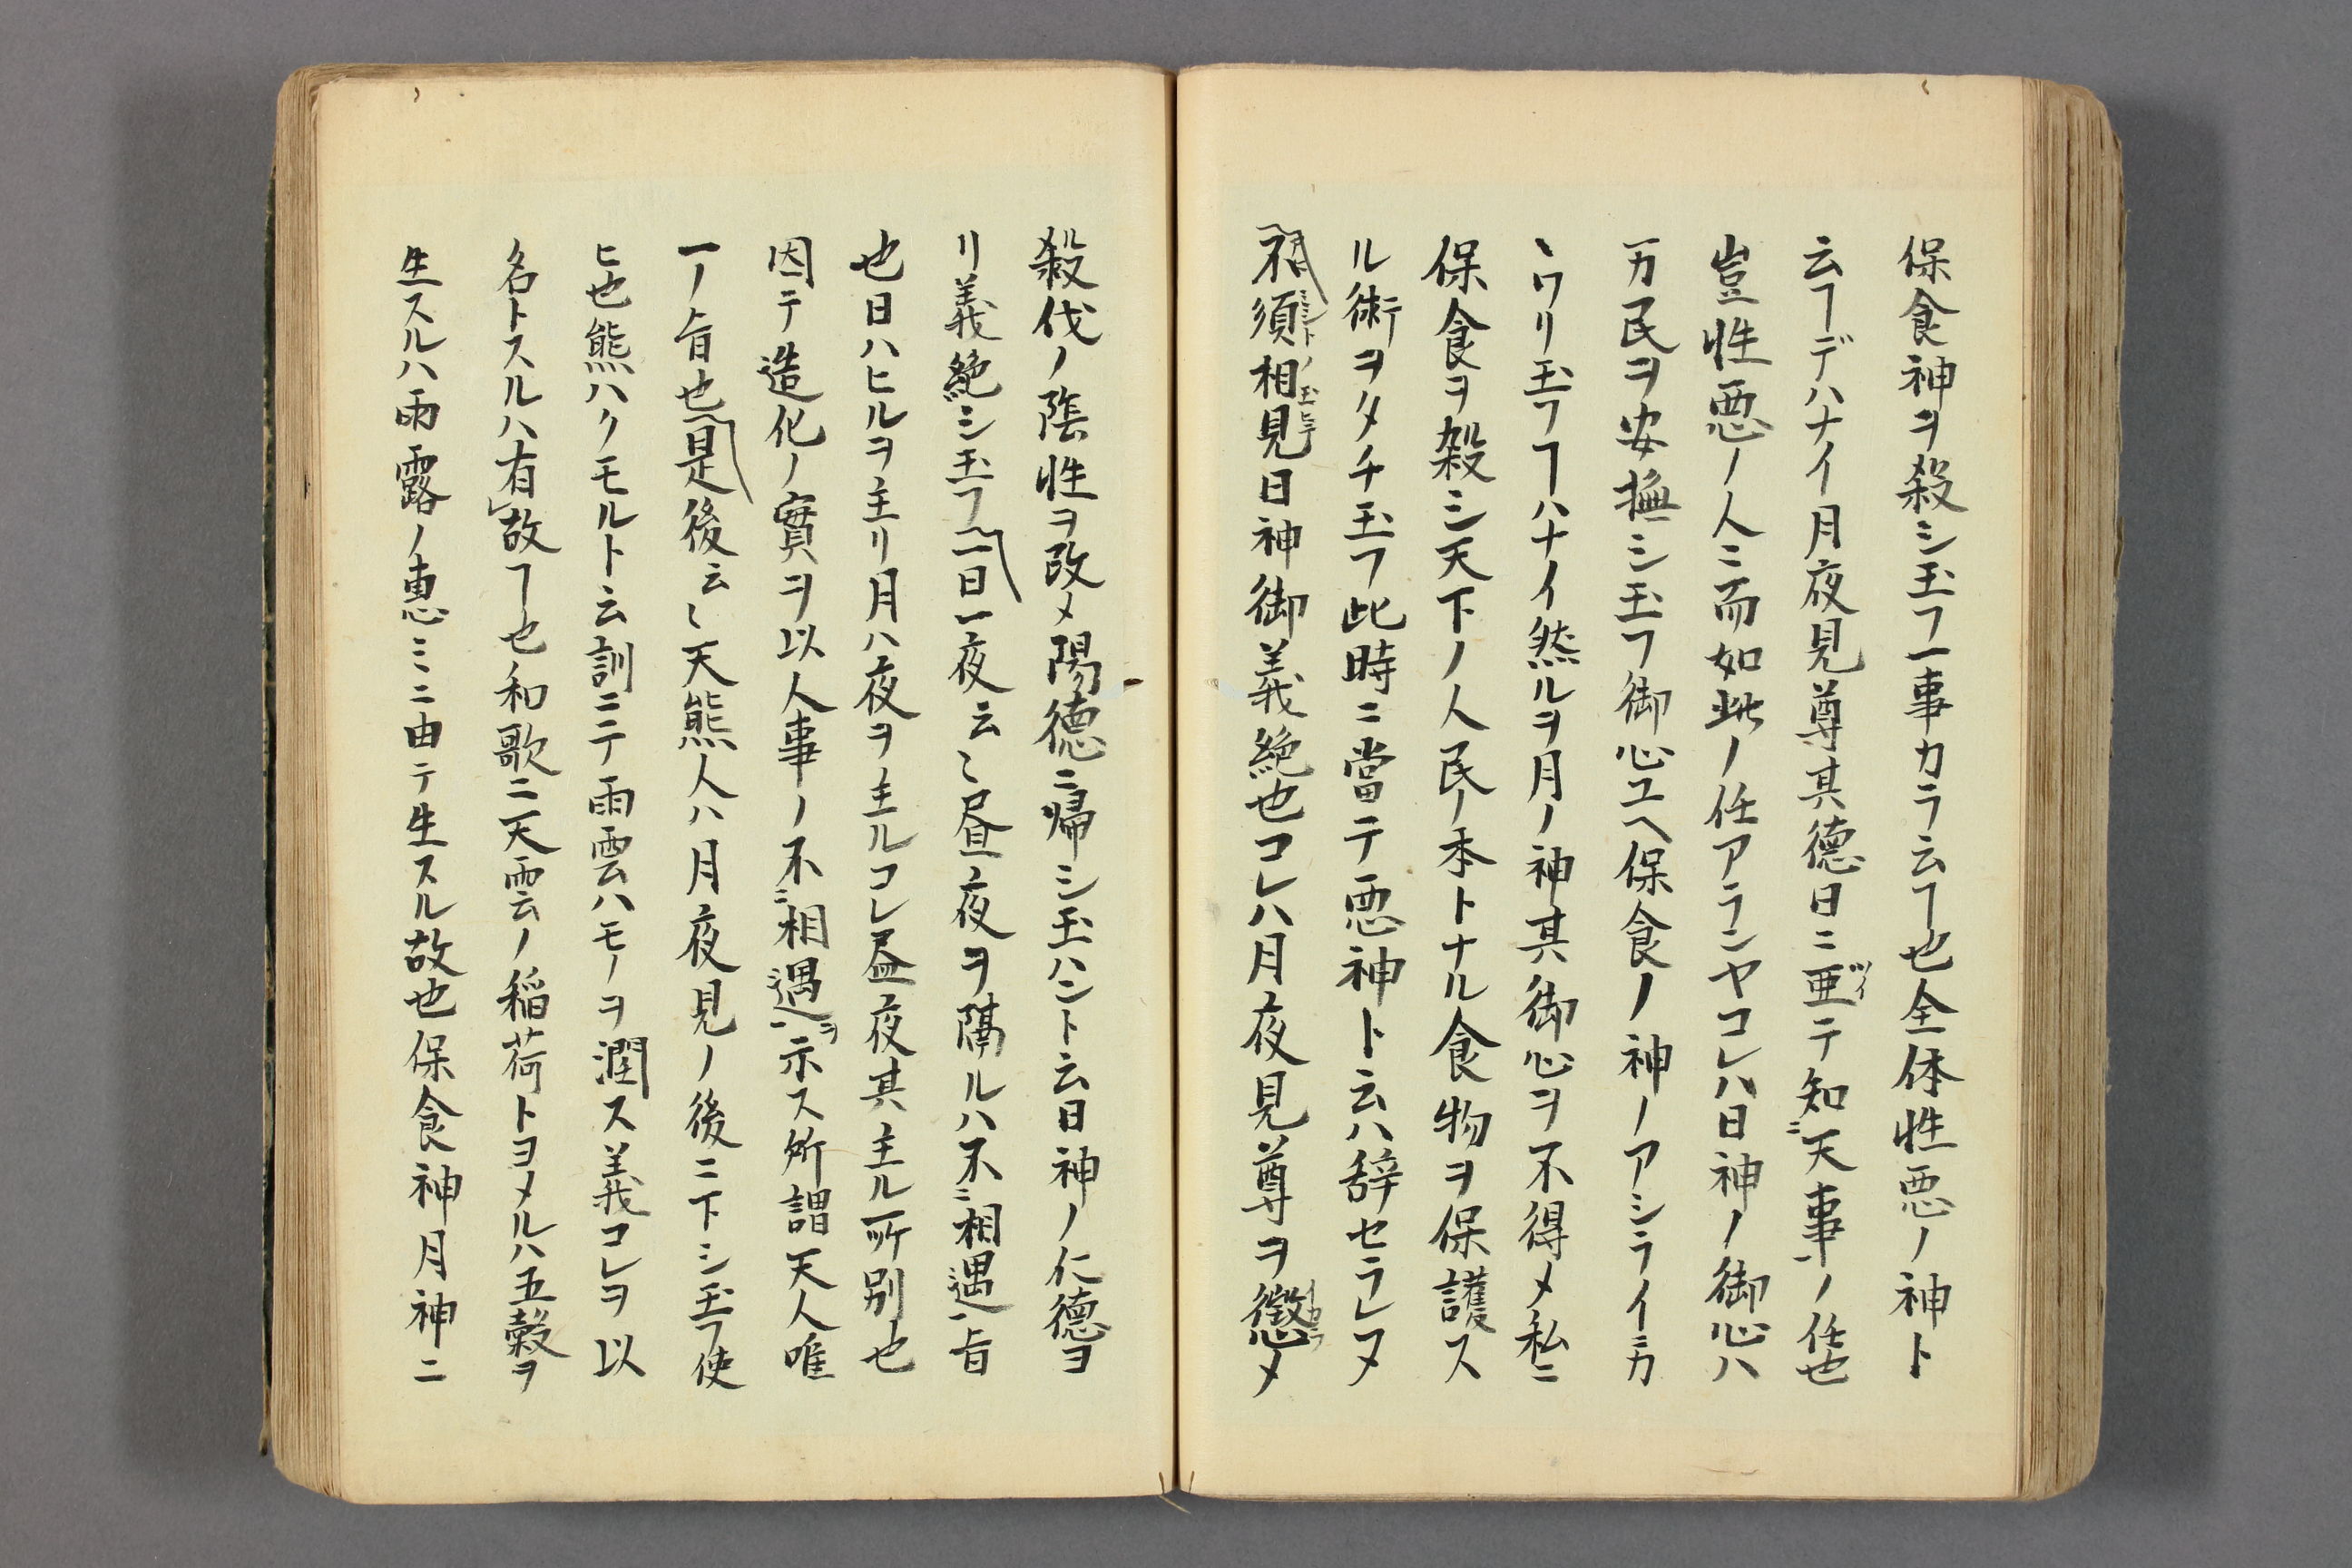 保食神ヲ殺シ玉フ一事カラ云ヿ也全体性悪ノ神ト
云ヿデハナイ月夜見尊其徳日ニ亜テ知天事ノ任也
豈性悪ノ人ニ而如此ノ任アランヤコレハ日神ノ御心ハ
万民ヲ安撫シ玉フ御心エヘ保食ノ神ノアシライニカ
ヽワリ玉フヿハナイ然ルヲ月ノ神其御心ヲ不得メ私ニ
保食ヲ殺シ天下ノ人民ノ本トナル食物ヲ保護ス
ル術ヲタチ玉フ此時ニ當テ悪神ト云ハ辞セラレヌ
不須相見日神御義絶也コレハ月夜見尊ヲ懲メ
殺伐ノ陰性ヲ改メ陽徳ニ帰シ玉ハント云日神ノ仁徳ヨ
リ義絶シ玉フ一日一夜云〻昼夜ヲ隔ルハ不相遇旨
也日ハヒルヲ主リ月ハ夜ヲ主ルコレ昼夜其主ル所別也
因テ造化ノ實ヲ以人事ノ不相遇ヲ示ス所謂天人唯
一ノ旨也是後云〻天熊人ハ月夜見ノ後ニ下シ玉フ使
ヒ也熊ハクモルト云訓ニテ雨雲ハモノヲ潤ス義コレヲ以
名トスルハ有故ヿ也和歌ニ天雲ノ稲荷トヨメルハ五穀ヲ
生スルハ雨露ノ恵ミニ由テ生スル故也保食神月神ニ